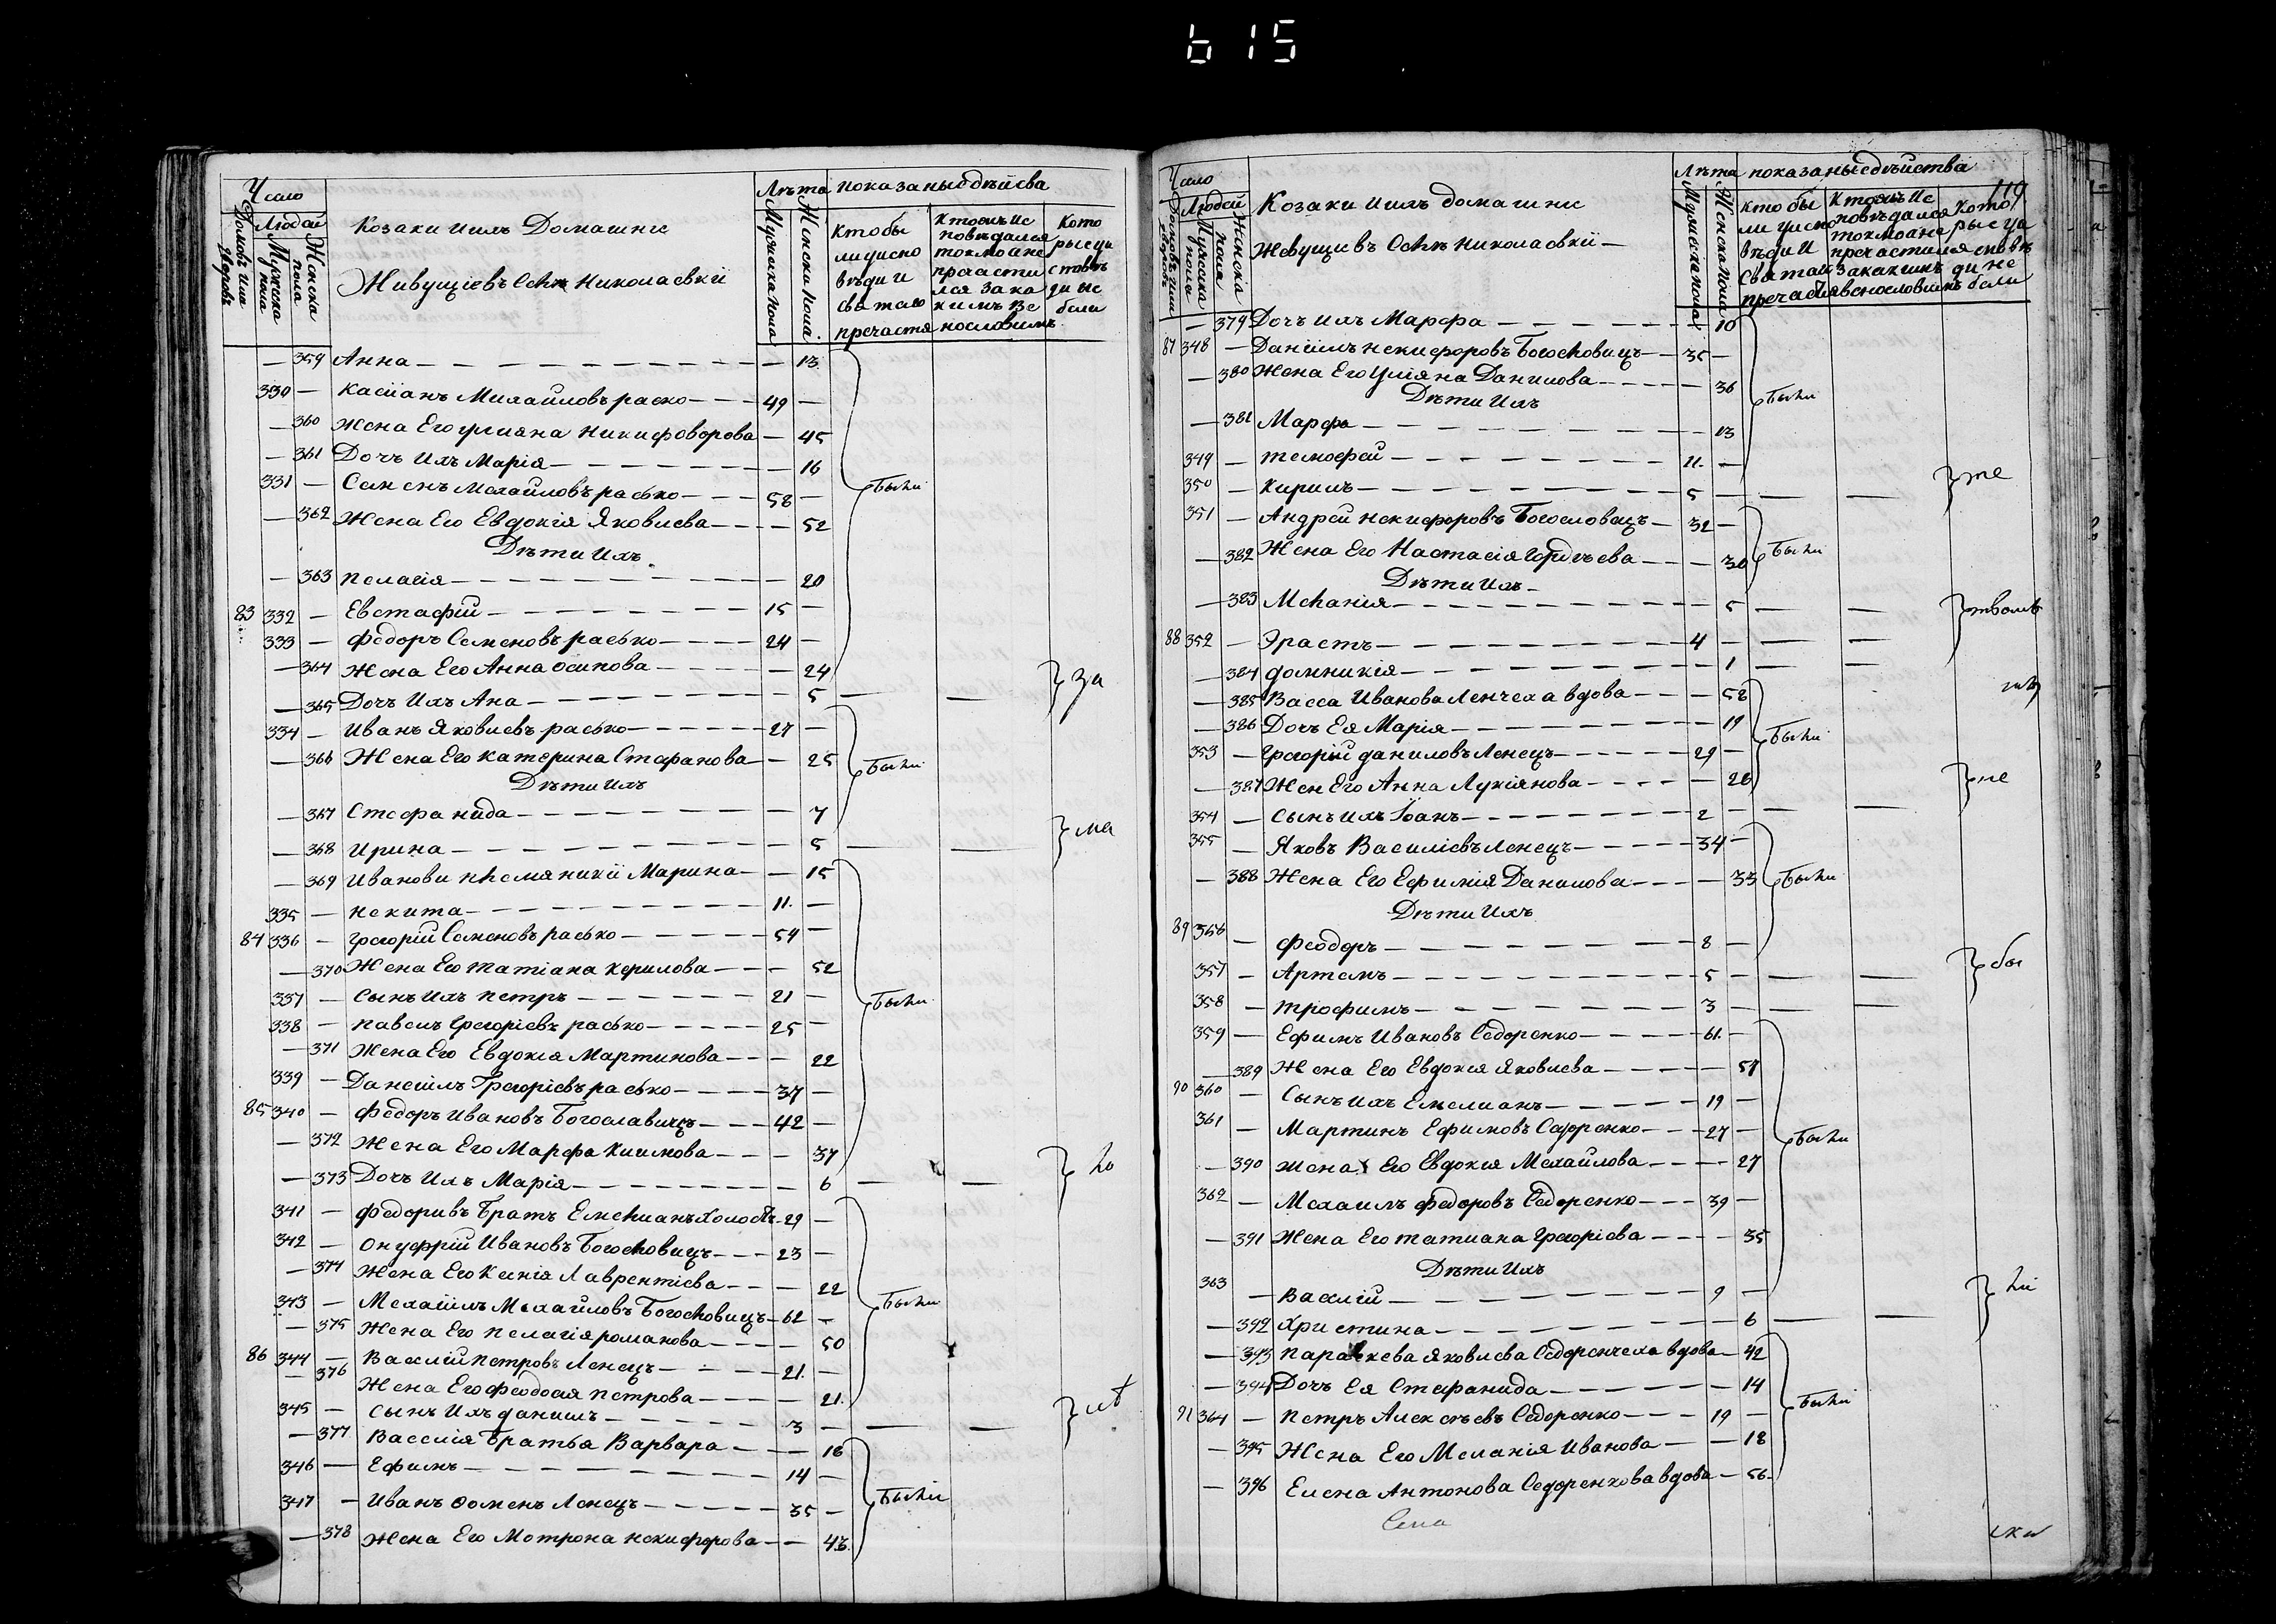 615
Число
Людей
Домовъ или дворовъ
Мужеска пола
Женска пола
Козаки ихъ Домашніе
Живущіевъ Селѣ Николаевкѣ
Лѣта
Мужеска пола
Женска пола
показаніесодѣйсва
кто бы
ли у испо
вѣди и
святаго
пречастя
Кто
повѣдался
токмо а не
пречасти
лся за ка
кимъ ве
нословимъ
Кото
рые
ди не
были
— 359 Анна — 13
330 — Касіанъ Михайловъ раско — 49 —
— 360 Жена Его улияна Никифоворова — 45
— 361 Дочъ Ихъ Марія — 16
331 — Семенъ Мехайловъ расько — 58 —
— 362 Жена Его Евдокія Яковлева — 52
Дѣти Ихъ
— 363 пелагія — 20
83 332 — Евстафій — 15 —
333 — Федоръ Семеновъ расько — 24 —
— 364 Жена Его Анна осипова — 24
— 365 Дочъ Ихъ Ана — 5 — —
334 — Иванъ Яковлевъ расько — 27 —
— 366 Жена Его катерина Стефанова — 25
Дѣти Ихъ
— 367 Стефанида — 7
— 368 Ирина — 5 — —
— 369 Иванови племяникіи Марина — 15
335 — Некита — 11. —
84 336 — Грегорій Семеновъ расько — 54 —
— 370 Жена Его татіана керилова — 52
337 — Сынъ Ихъ петръ — 21 —
338 — павелъ Грегоріевъ расько — 25 —
— 371 Жена Его Евдокія Мартинова — 22
339 — Данеіилъ Грегоріевъ расько — 37 —
85 340 — Федоръ Ивановъ Богославицъ — 42 —
— 372 Жена Его Марфа Климова — 37
— 373 Дочъ Ихъ Марія — 6 — —
341 — Федоривъ Братъ Емелианъ Холостъ 29 —
342 — Онуфрій Ивановъ Богословицъ — 23 —
— 374 Жена Его Ксенія Лаврентіева — 22
343 — Мехаіилъ Мехайловъ Богословицъ — 62 —
— 375 Жена Его пелагія романова — 50
86 344 — Василій петровъ Ленецъ — 21. —
— 376 Жена Его Феодосія петрова — 21.
345 — Сынъ Ихъ данишъ — 3 — — —
— 377 Васелія Братья Варвара — 16
346 — Ефимъ — 14 —
347 — Иванъ Фоменъ Ленецъ — 35 —
— 378 Жена Его Мотрона Некифорова — 43.
Были
Были
Были
Были
Были
за
ма
ло
лѣт
Число
Людей
Домовъ или дворовъ
Мужеска пола
Женска пола
Козаки ихъ домашніе
Жевущіевъ Селѣ Николаевкіи
Лѣта
Мужеска пола
Женска пола
показаніесодѣйства
119
кто бы
ли у испо
вѣди и
святаи
Кто
повѣдался
токмо а не
пречастился
Кото
рые
ди не
были
— 379 Дочъ ихъ Марфа — 10
87 348 — Даніилъ некифоровъ Богословицъ — 35 —
— 380 Жена Его Улияна Данилова — 36
Дѣти Ихъ
— 381 Марфа — 13
349 — темофей — 11. —
350 — Кирилъ — 5 — — —
351 — Андрей некифоровъ Богословецъ — 32 —
— 382 Жена Его Настасія Гордѣева — 30
Дѣти Ихъ
— 383 Меланія — 5 — —
88 352 — Эрастъ — 4 — — —
— 384 домникія — 1 — —
— 385 Васса Иванова Ленчеха вдова — 58
— 386 Дочъ Ея Марія — 19
353 — Грегорій даниловъ Ленецъ — 29 —
— 387 Жен Его Анна Лукіянова — 26
354 — Сынъ ихъ Іоанъ — 2 — — —
355 — Яковъ Василіевъ Ленецъ — 34 —
— 388 Жена Его Ефимія Данилова — 33
Дѣти Ихъ
89 356 — Феодоръ — 8 —
357 — Артемъ — 5 — — —
358 — трофимъ — 3 — — —
359 — Ефимъ Ивановъ Седоренко — 61. —
— 389 Жена Его Евдокія Яковлева — 57
90 360 — Сынъ ихъ Емелианъ — 19 —
361 — Мартинъ Ефимовъ Седоренко — 27 —
— 390 жена Его Евдокія Мехайлова — 27
362 — Мехаилъ Федоровъ Седоренко — 39 —
— 391 Жена Его татиана Грегоріева — 35
Дѣти Ихъ
363 — Василій — 9 —
— 392 Христина — 6 — —
— 393 параскева Яковлева Седоренчеха вдова — 42
— 394 Дочъ Ея Стефанида — 14
91 364 — петръ Алексѣевъ Седоренко — 19 —
— 395 Жена Его Меланія Иванова — 18
— 396 Елена Антонова Седоренкова вдова — 56.
Были
Были
Были
Были
Были
Были
же
не
бы
ли